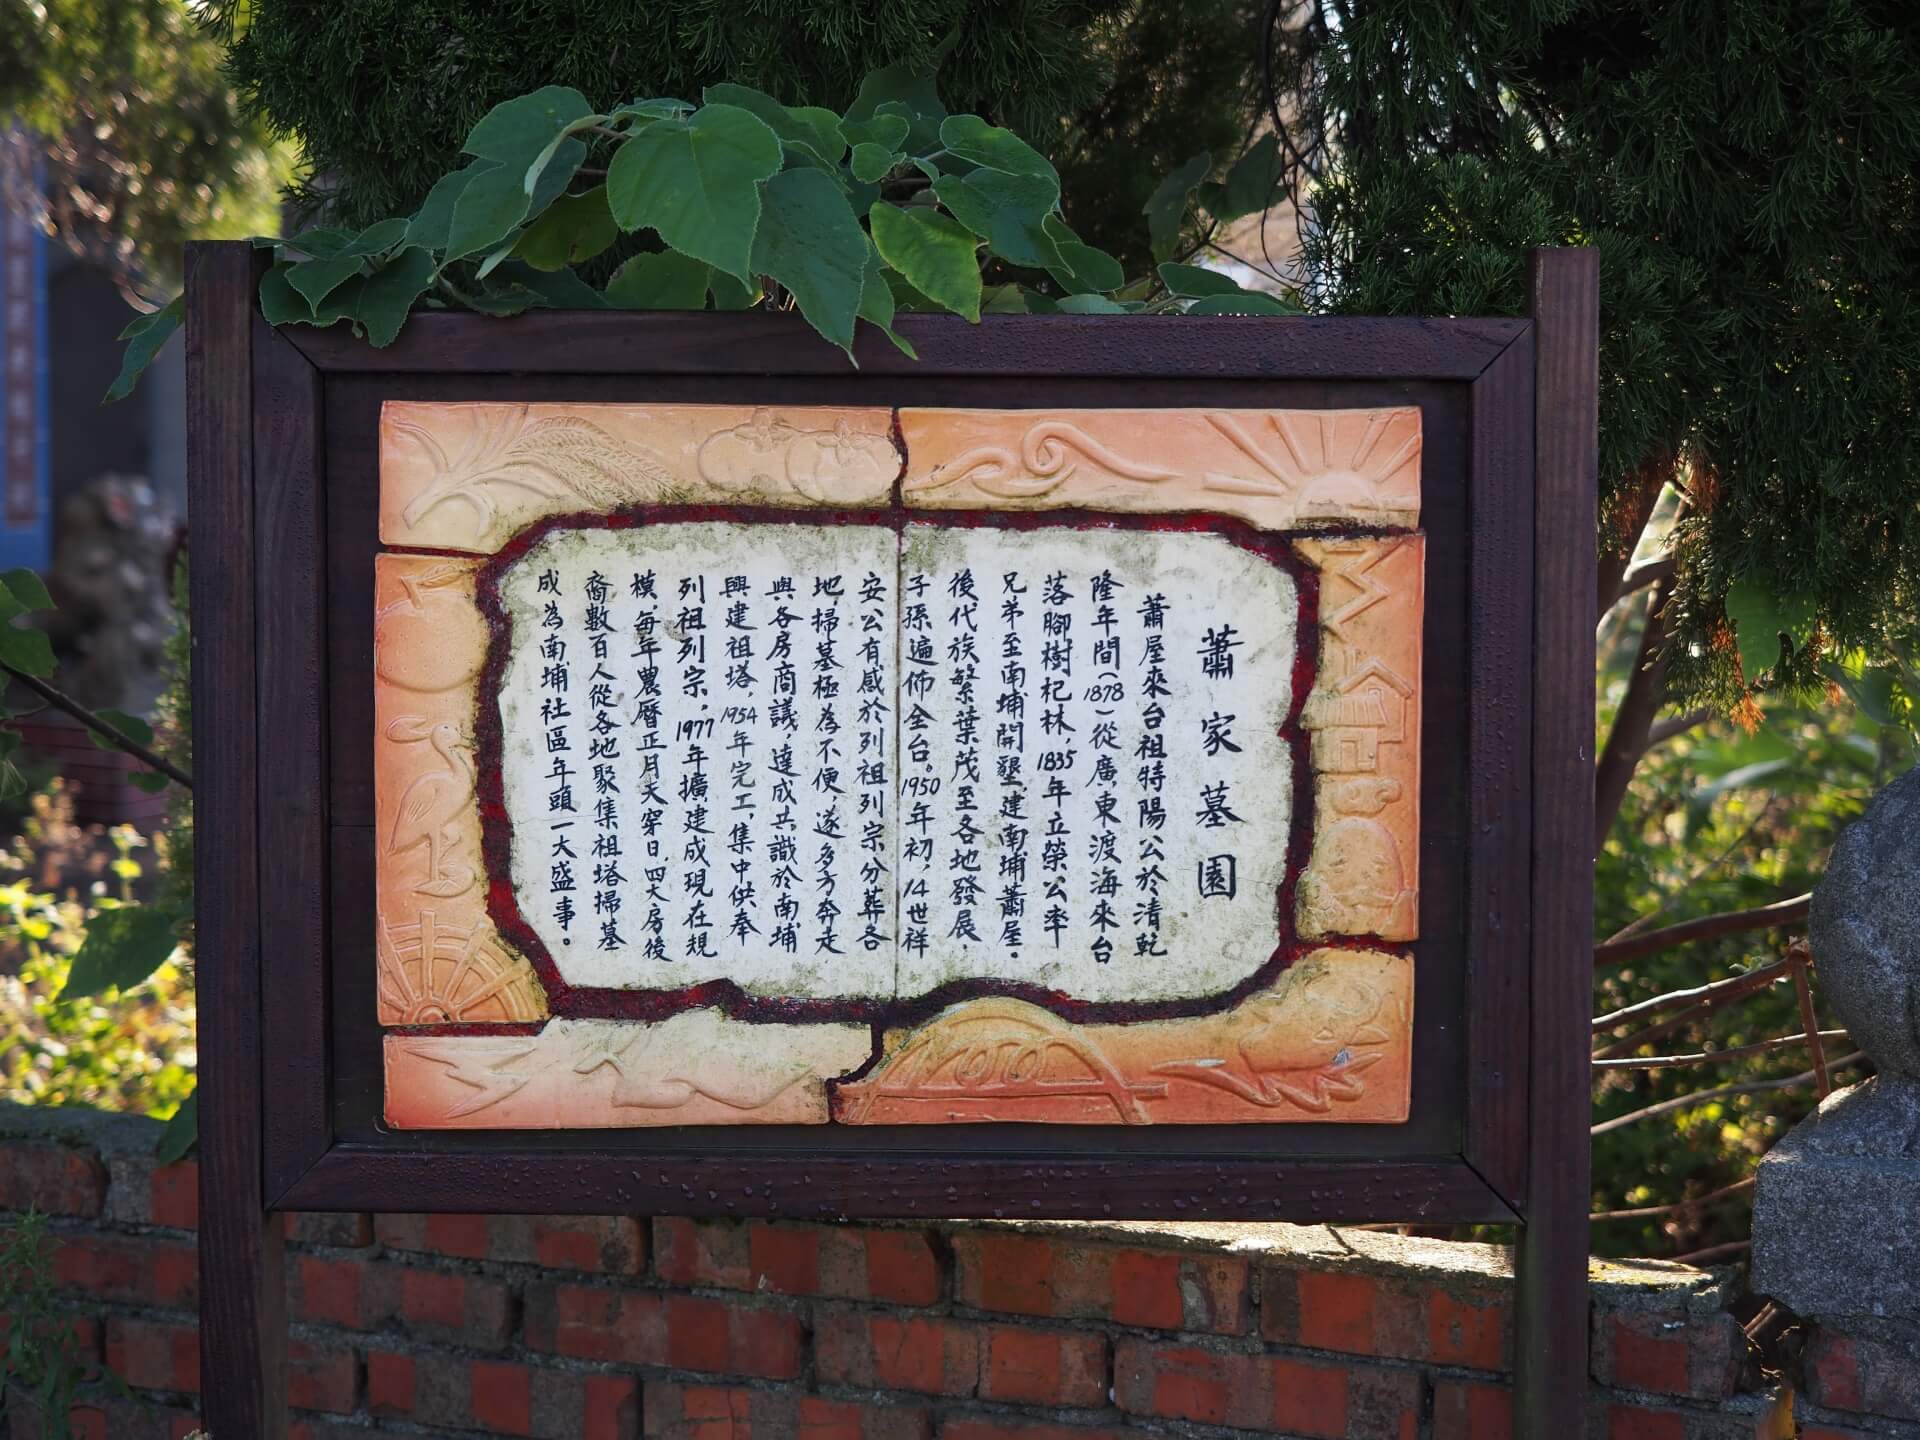 蕭家墓園
蕭屋來台祖特陽公於清乾
隆年間(1878)從廣東渡海來台
落腳樹杞林,1835年立榮公率
兄弟至南埔開墾,建南埔蕭屋。
後代族繁葉茂至各地發展,
子孫遍佈全台。1950年初,14世祥
安公有感於列祖列宗分葬各
地,掃墓極為不便,遂多方奔走
與各房商議,達成共識於南埔
興建祖塔,1954年完工,集中供奉
列祖列宗,1977年擴建成現在規
模,每年農曆正月天穿日,四大房後
裔數百人從各地聚集祖塔掃墓
成為南埔社區年頭一大盛事。